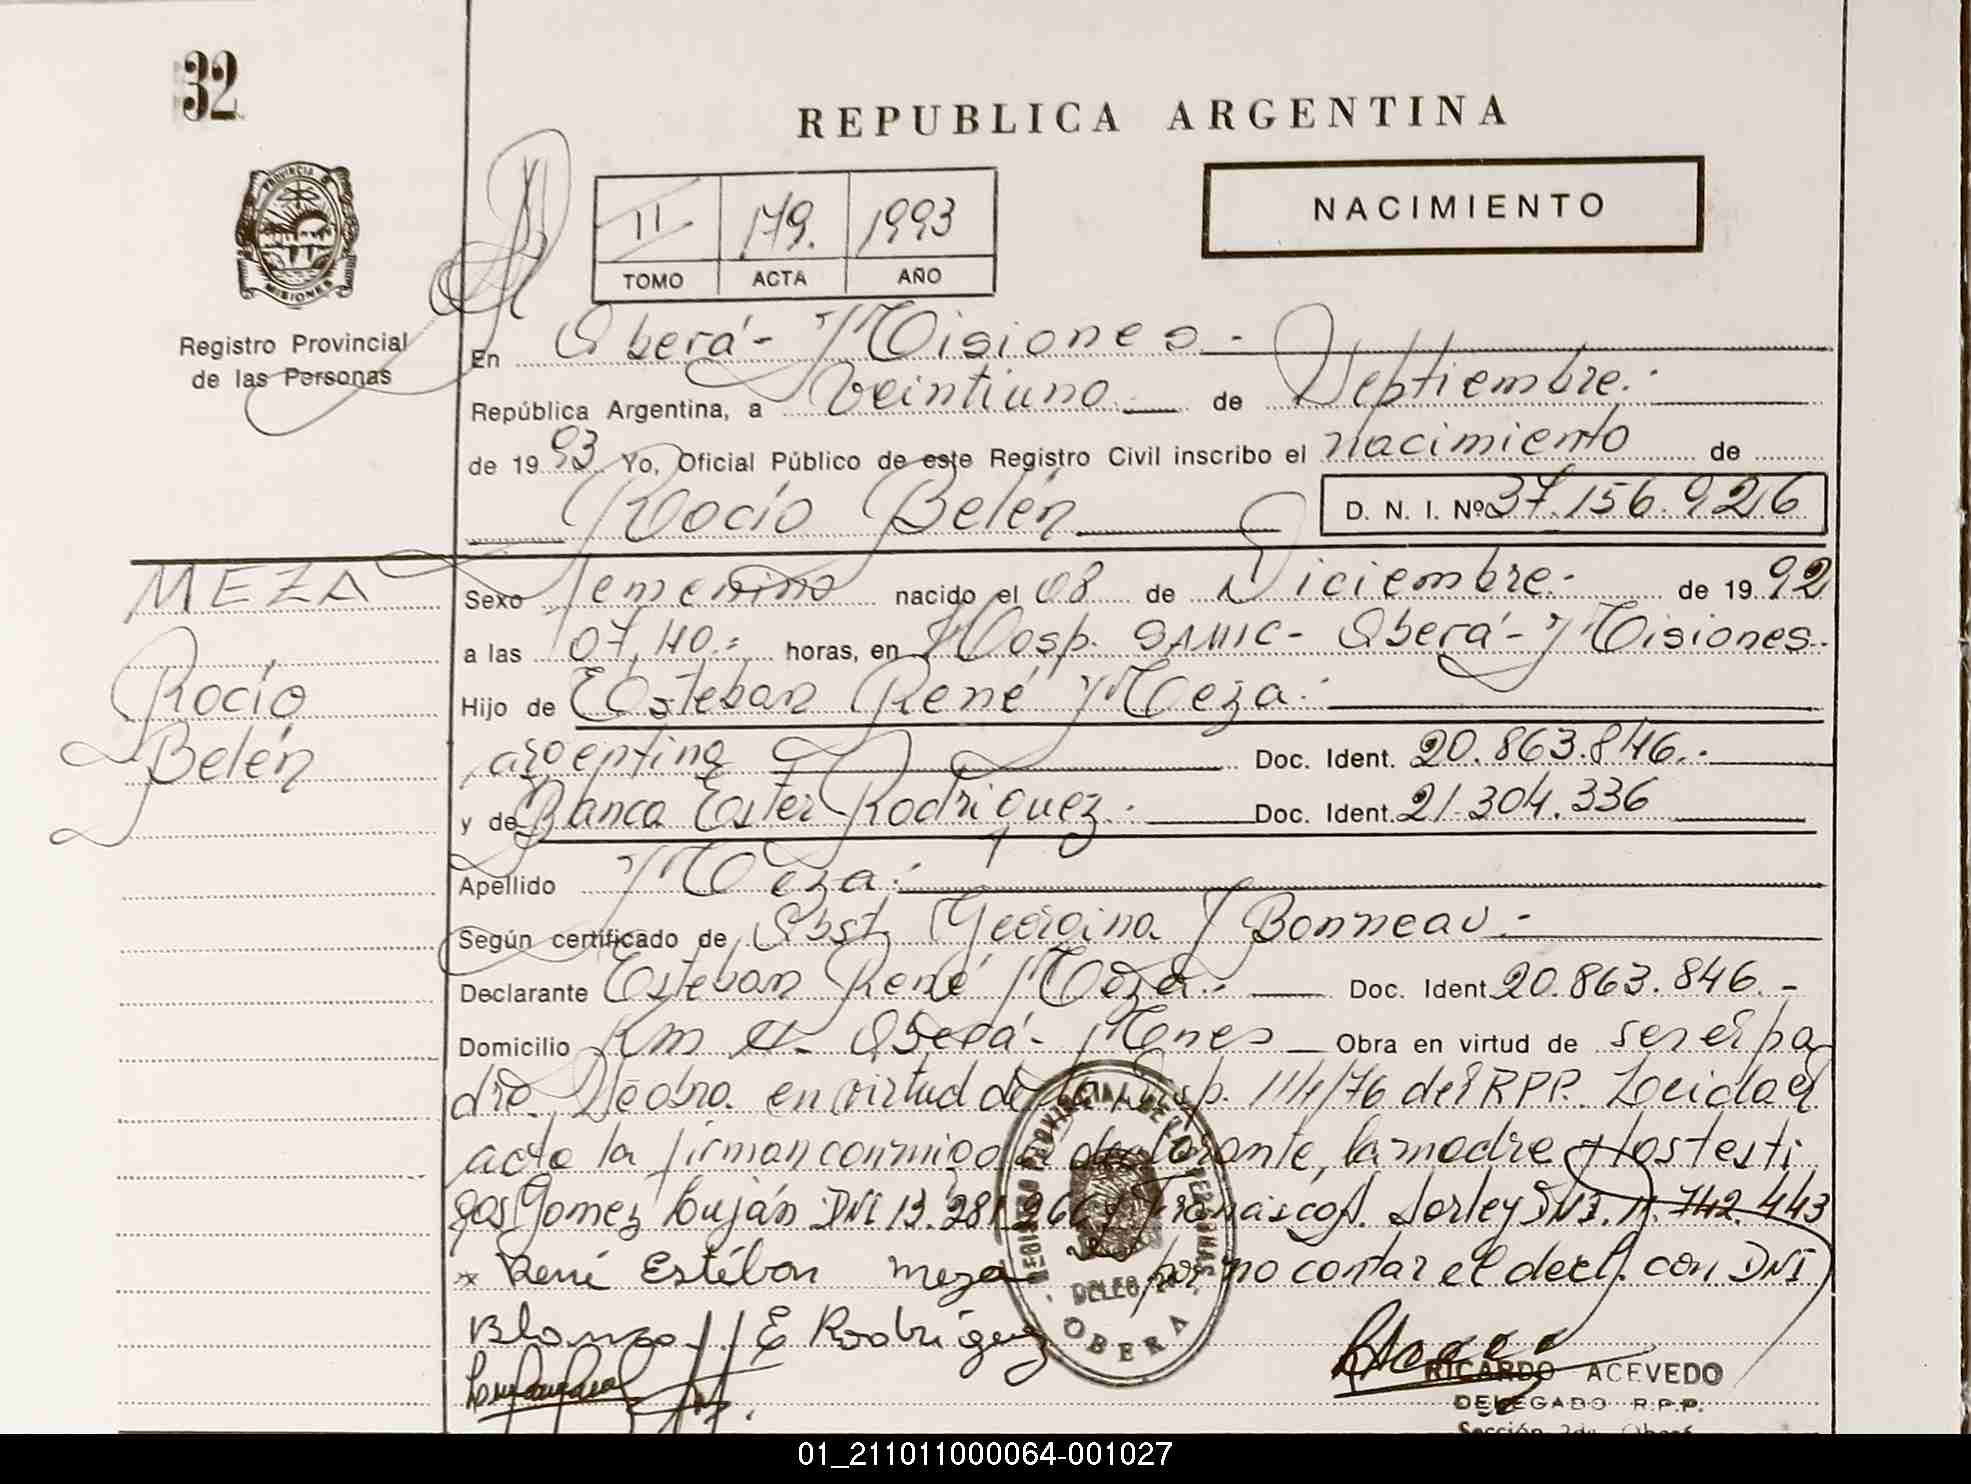 32
REPUBLICA ARGENTINA
PROVINCIA D
MISIONES
Registro Provincial
de las Personas
II 179. 1993
TOMO ACTA AÑO
NACIMIENTO
En Oberá - Misiones -
República Argentina, a Veintiuno de Septiembre.-
de 1993 Yo, Oficial Público de este Registro Civil inscribo el nacimiento de
Rocío Belén D. N. I. Nº 37.156.926
MEZA
Rocío
Belén
Sexo femenino nacido el 08 de Diciembre.- de 1992
a las 07,40.= horas, en Hosp. SAMIC - Oberá - Misiones.-
Hijo de Esteban René Meza.-
argentina Doc. Ident. 20.863.846.-
y de Blanca Ester Rodriguez.- Doc. Ident. 21.304.336
Apellido Meza.-
Según certificado de Obst. Georgina Bonneau.-
Declarante Esteban René Meza.- Doc. Ident 20.863.846.-
Domicilio Km Oberá - Mones Obra en virtud de ser el pa
dre. Se obra en virtud de la Disp. 111/76 del RPP. Leida el
acta la firman conmigo el declarante, la madre y los testi
gos Gomez Luján DNI 13.281.266 y Sorley DNI. 11.742.443
* René Estéban meza por no contar el decl. con DNI
Blanca E Rodríguez
REGISTRO PROVINCIAL DE LAS PERSONAS
DELEG
OBERA
RICARDO ACEVEDO
DELEGADO R.P.P.
Sección 2da Oberá
01_211011000064-001027